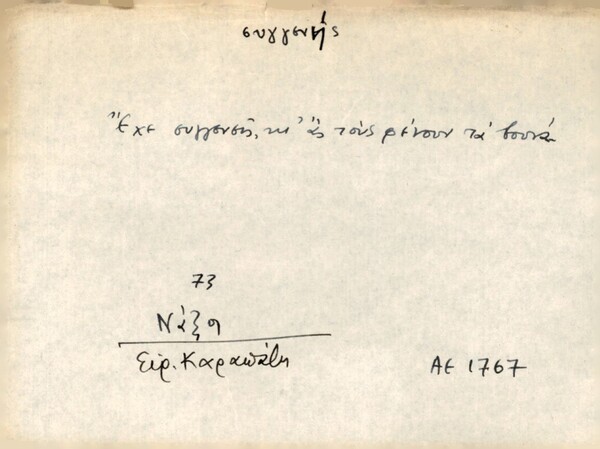 συγγενής
Ἔχε συγγενεῖς, κι' ἂς τοὺς φένουν τὰ βουνά
73
Νάξος
Εἰρ. Καραπάτη
ΑΕ 1767